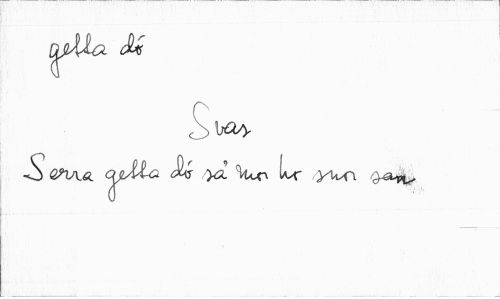 getta dó
Svas
Serra getta dó sa' mor ho snor san